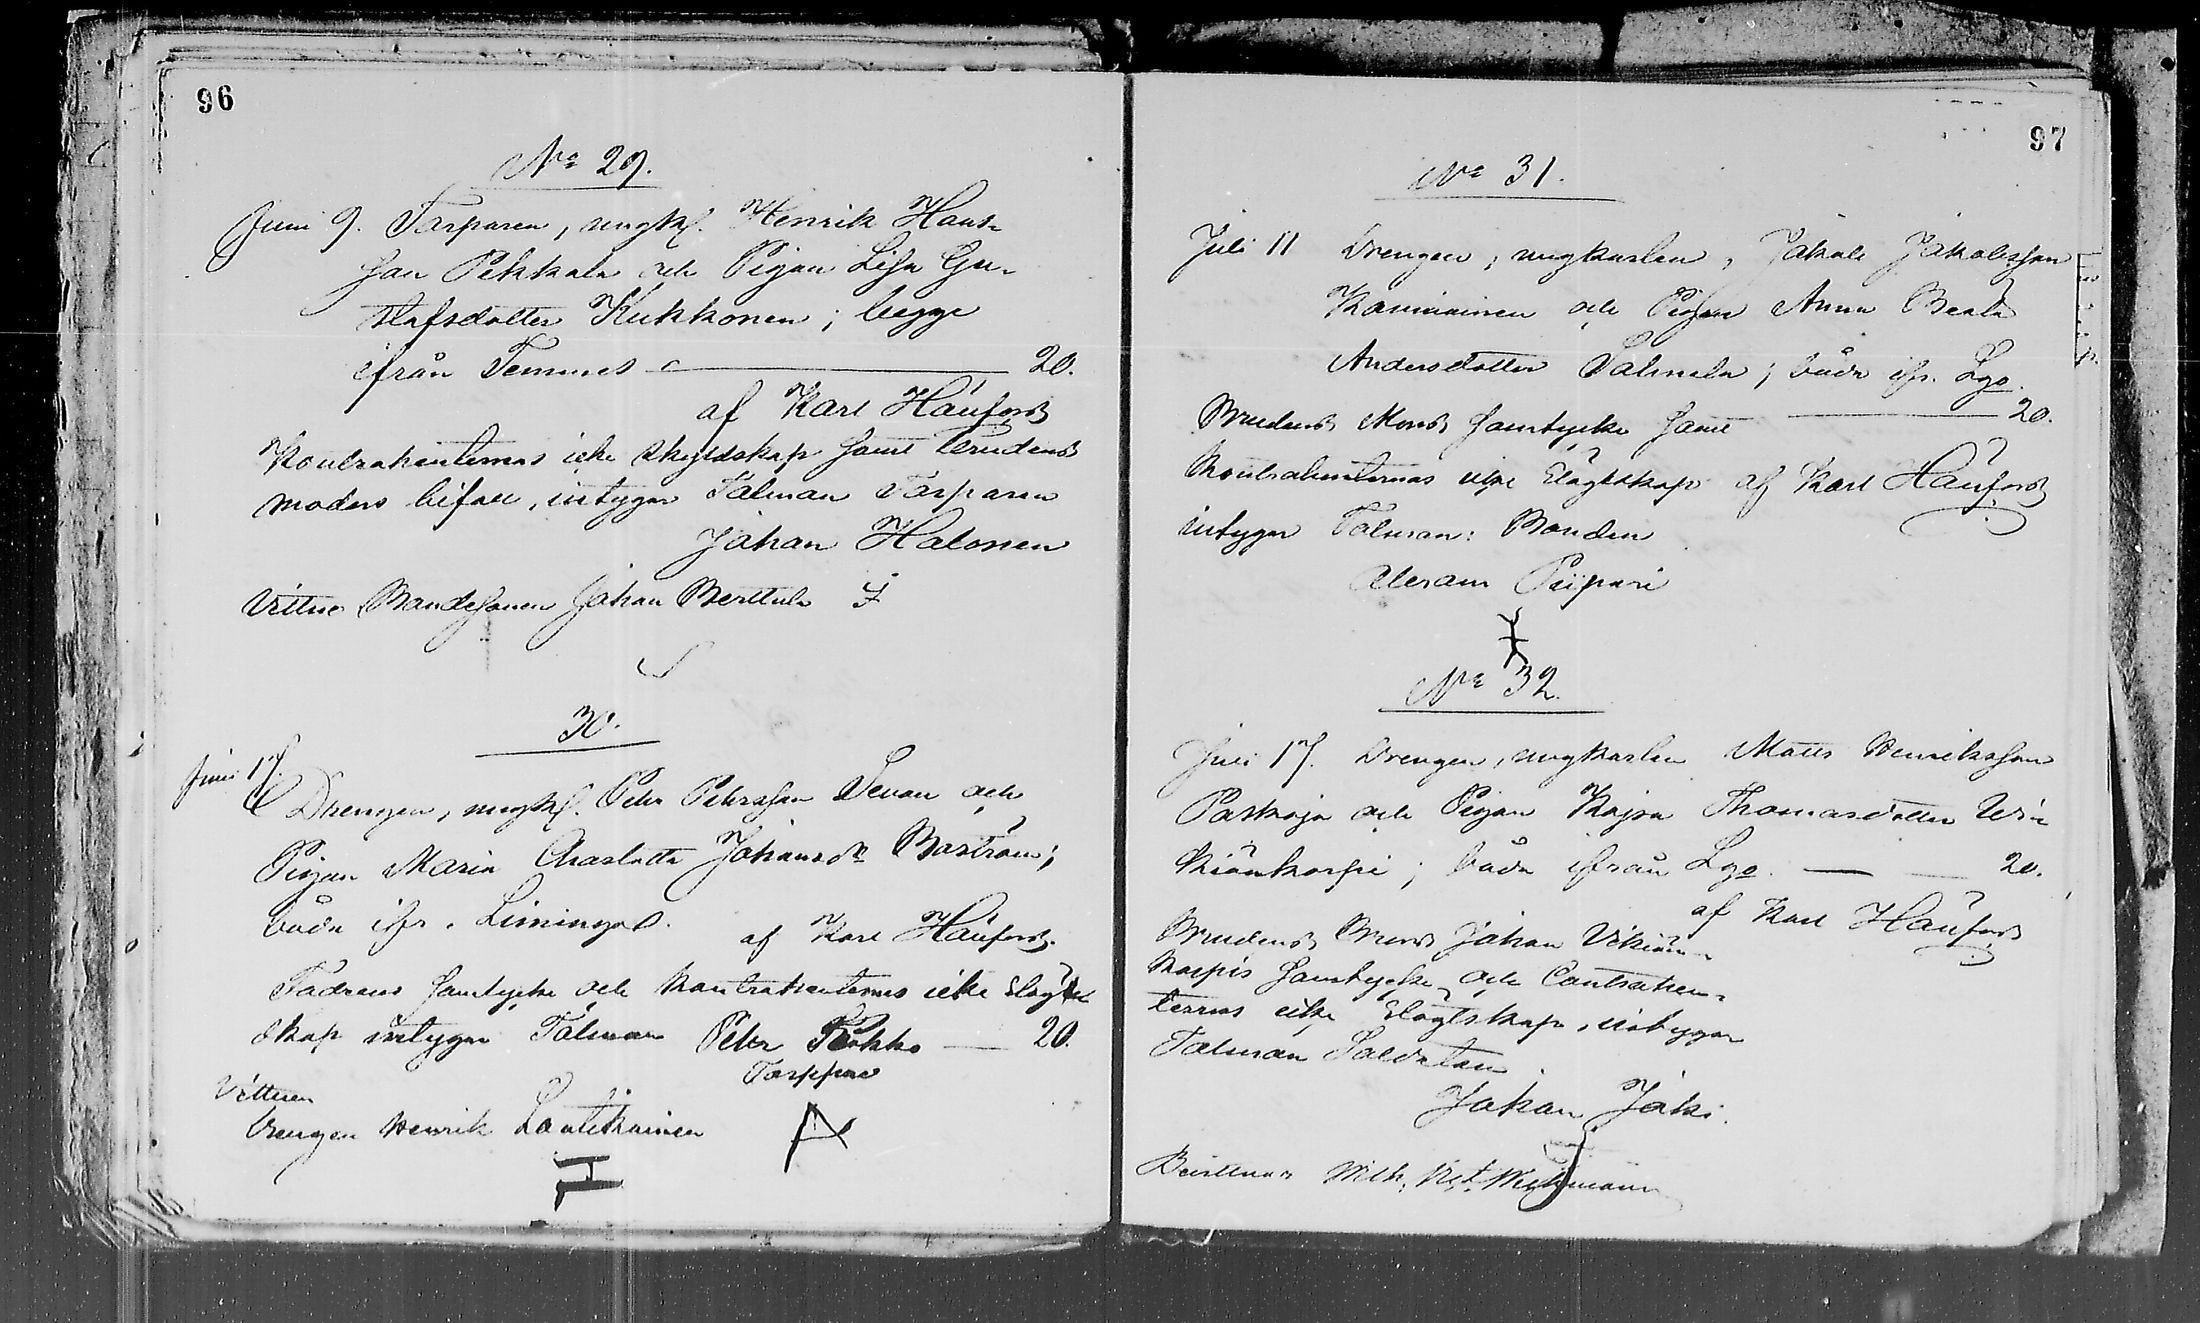 96
No 29.
Juni 9. Torparen, ungk. Henrik Hans-
son Pekkala och Pigan Lisa Gu-
stafsdotter Kukkonen; begge
ifrån Temmes 20.
af Karl Hänfors
Kontrahenternas icke skyldskap samt Brudens
moders bifall, intygar Talman Torparen
Johan Halonen
Vittne Bondesonen Johan Berttula
30.
Juni 17.
Drengen, ungk. Petr Petersson and och
Pigan Maria Charlotta Johansdr Boström;
båda ifr. Limingo.
af Karl Hänfors.
Fadrens samtycke och kontrahenternas icke slägt
skap intygar Talman Petr Pokko 20.
Torppare
Vittnen
Drengen Henrik Lantikainen
97
No 31.
Juli 11 Drengen, ungkarlen, Jakob Jakobsson
Kaminainen och Pigan Anna Beata
Andersdotter Salmela; båda ifr. Lgo.
Brudens Mors samtycke samt 20.
Kontrahenternas icke Slägtskap af Karl Hänfors
intygar Talman: Bonden
Abram Piipari
No 32.
Juli 17. Drengen, ungkarlen Matts Henriksson
Paskoja och Pigan Kajsa Thomasdotter Wi-
kiönkorpi; båda ifrån Lgo. 20.
af Karl Hänfors
Brudens Brors Johan Vikiön-
korpis samtycke och Contrahen-
ternas icke Slägtskap, intygar
Talman Soldaten
Johan Joki.
Bevittnar Wilh.